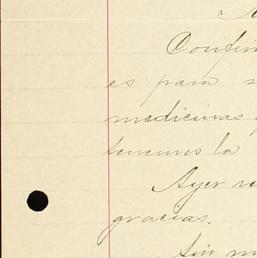 es para
medicinas
tenemos la
Ayer re
gracias.
Sin m